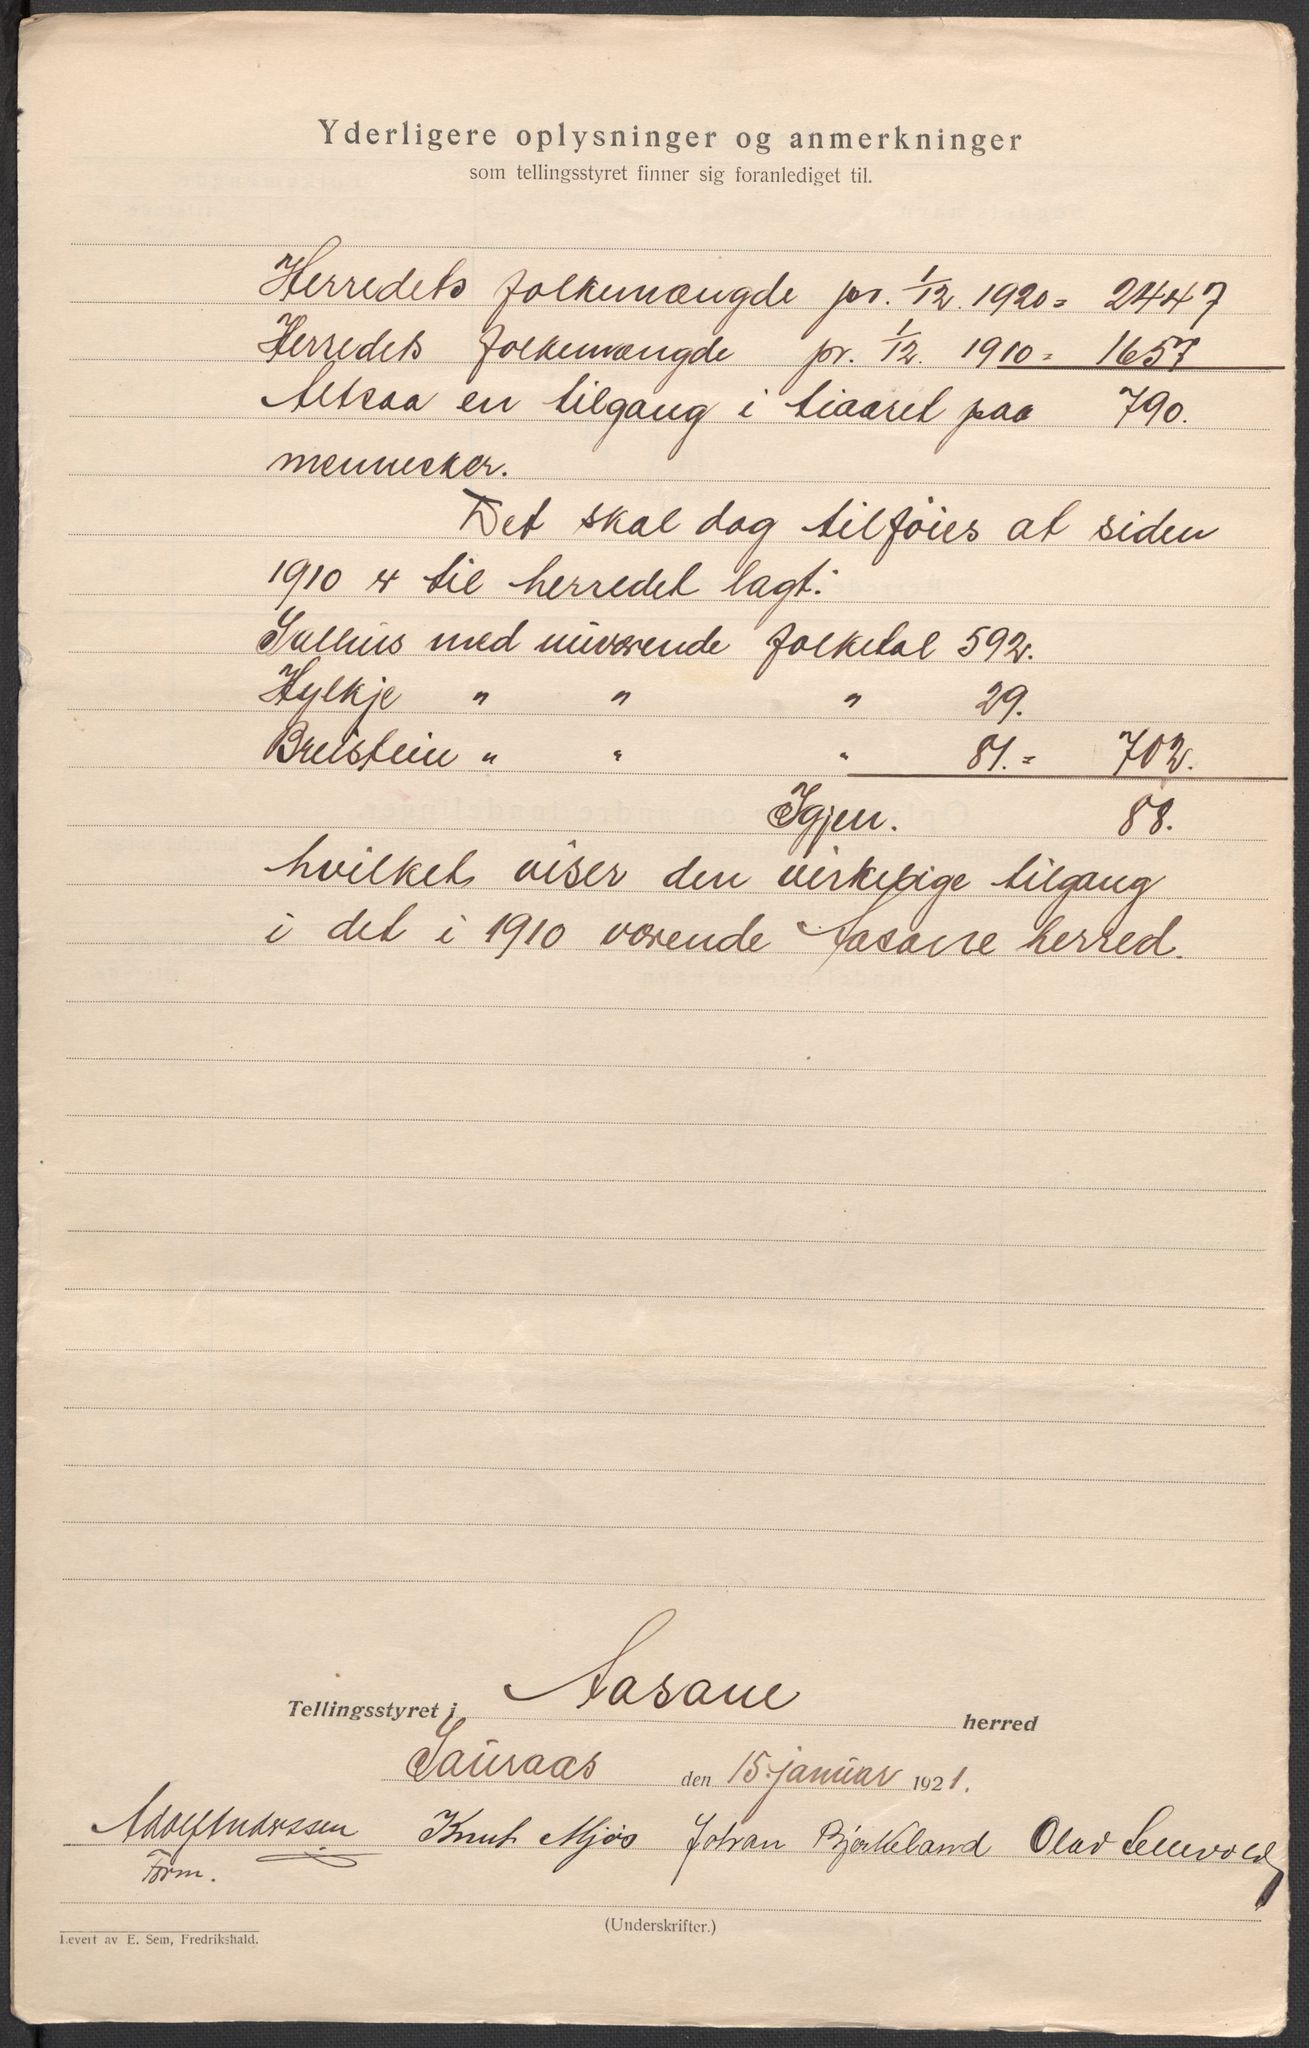 Yderligere oplysninger og anmerkninger
som tellingsstyret finner sig foranlediget til.
Herredets folkemængde pr. 1/12. 1920 = 2447
Herredets folkemængde pr. 1/12. 1910 = 1657
Altsaa en tilgang i tiaaret paa 790.
mennesker.
Det skal dog tilføies at siden
1910 er til herredet lagt:
Salhus med nuværende folketal 592.
Hylkje " " " 29.
Breistein " " " 81. = 702.
Igjen. 88.
hvilket viser den virkelige tilgang
i det i 1910 værende Aasane herred.
Tellingsstyret i Aasane herred
Sauraas den 15. januar 1921.
Adolf Anderssen Knut Mjøs Johan Bjørkeland Olav
Form.
(Underskrifter.)
Levert av E. Sem, Fredrikshald.